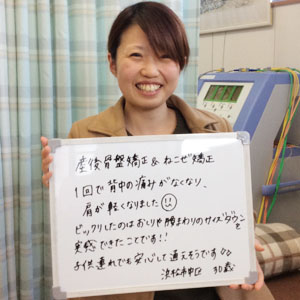 産後骨盤矯正 & ねこぜ矯正
1回で背中の痛みがなくなり、
肩が軽くなりました
ビックリしたのはおしりや腰まわりのサイズダウンを
実感できたことです!!
子供連れでも安心して通えそうです
浜松市中区 30歳